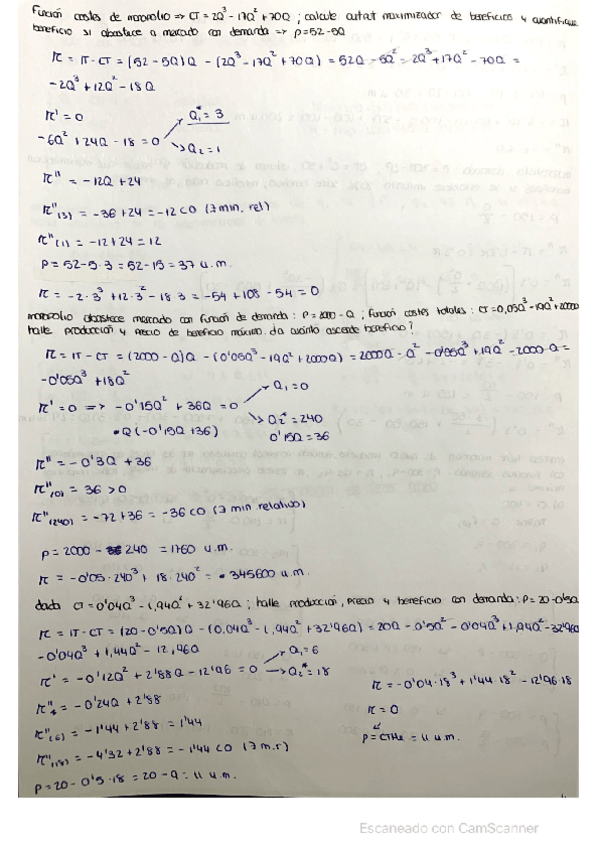 Función costes de monopolio => CT = 2Q³ - 17Q² + 70Q ; calcule output maximizador de beneficios y cuantifique
beneficio si abastece a mercado con demanda => p = 52 - 5Q
π = IT - CT = (52 - 5Q)Q - (2Q³ - 17Q² + 70Q) = 52Q - 5Q² - 2Q³ + 17Q² - 70Q =
-2Q³ + 12Q² - 18Q
π' = 0
-6Q² + 24Q - 18 = 0
Q₁* = 3
Q₂ = 1
π'' = -12Q + 24
π''(3) = -36 + 24 = -12 < 0 (∃ min. rel)
π''(1) = -12 + 24 = 12
p = 52 - 5·3 = 52 - 15 = 37 u.m.
π = -2·3³ + 12·3² - 18·3 = -54 + 108 - 54 = 0
monopolio abastece mercado con función de demanda: P = 2000 - Q ; función costes totales: CT = 0,05Q³ - 19Q² + 2000Q
halle producción y precio de beneficio máximo. da cuánto asciende beneficio?
π = IT - CT = (2000 - Q)Q - (0'05Q³ - 19Q² + 2000Q) = 2000Q - Q² - 0'05Q³ + 19Q² - 2000Q =
-0'05Q³ + 18Q²
π' = 0 => -0'15Q² + 36Q = 0
Q₁ = 0
Q₂* = 240
Q(-0'15Q + 36)
0'15Q = 36
π'' = -0'3Q + 36
π''(0) = 36 > 0
π''(240) = -72 + 36 = -36 < 0 (∃ min relativo)
p = 2000 - 240 = 1760 u.m.
π = -0'05·240³ + 18·240² = 345600 u.m.
dada CT = 0'04Q³ - 1,94Q² + 32'96Q ; halle producción, precio y beneficio con demanda: P = 20 - 0'5Q
π = IT - CT = (20 - 0'5Q)Q - (0,04Q³ - 1,94Q² + 32'96Q) = 20Q - 0'5Q² - 0'04Q³ + 1,94Q² - 32'96Q
-0'04Q³ + 1,44Q² - 12,96Q
π' = -0'12Q² + 2'88Q - 12'96 = 0
Q₁ = 6
Q₂* = 18
π'' = -0'24Q + 2'88
π''(6) = -1'44 + 2'88 = 1'44
π''(18) = -4'32 + 2'88 = -1'44 < 0 (∃ m.r)
p = 20 - 0'5·18 = 20 - 9 = 11 u.m.
π = -0'04·18³ + 1'44·18² - 12'96·18
π = 0
p = CTMe = 11 u.m.
Escaneado con CamScanner